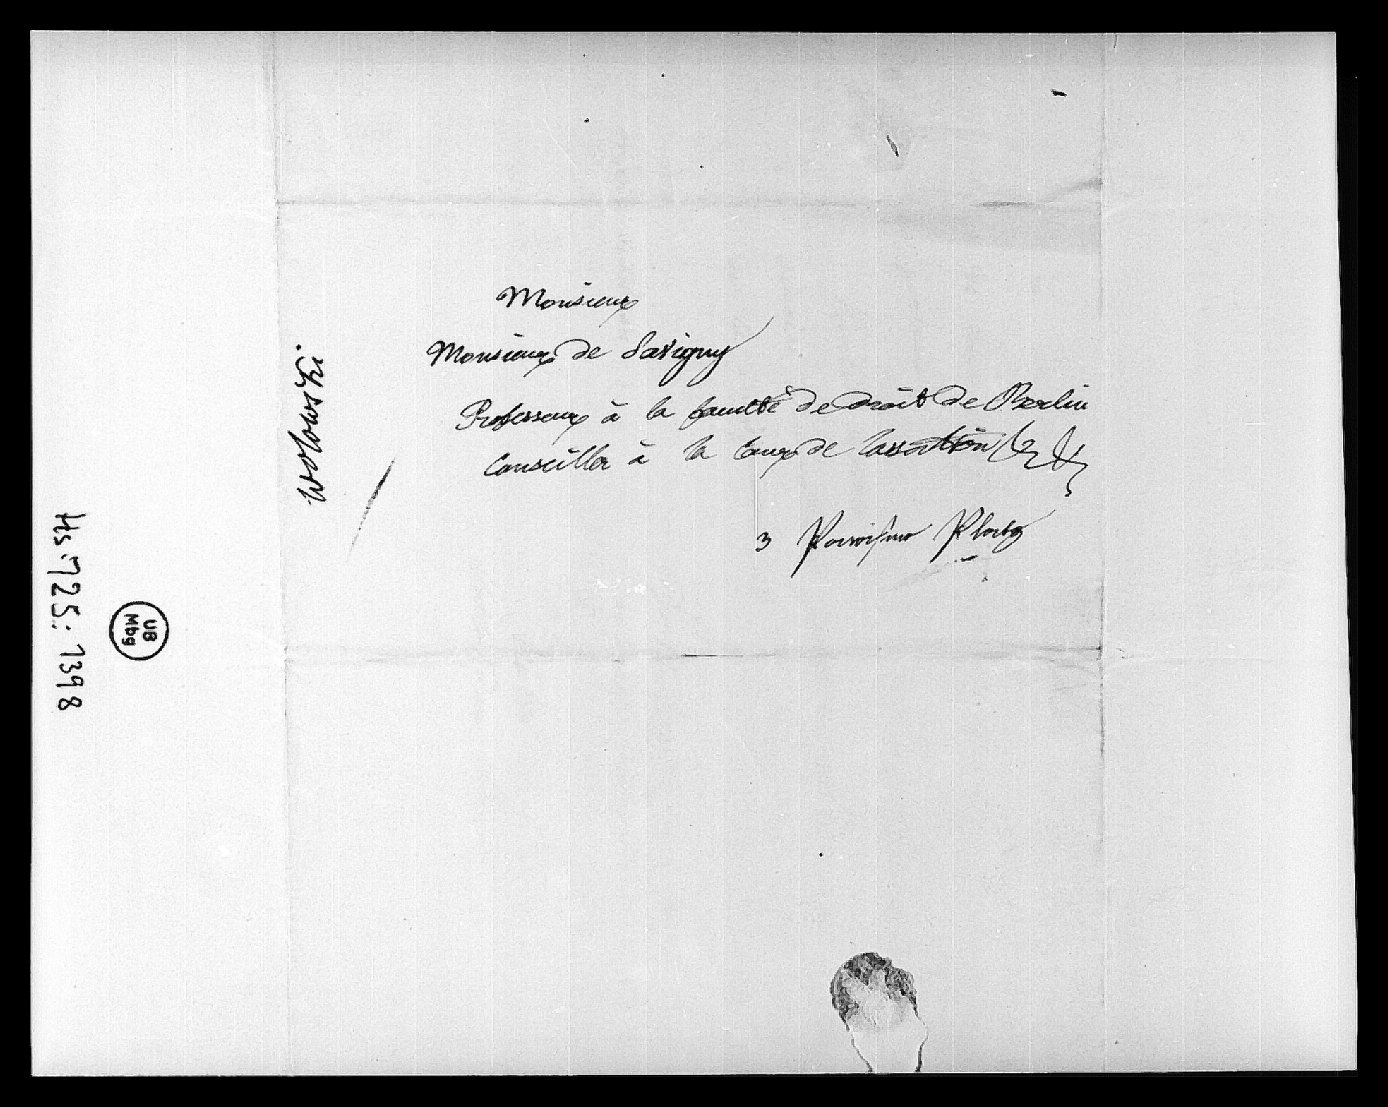 Monsieur
Monsieur de Savigny
Professeur à la faculté de droit de Berlin
Conseiller à la Cour de Cassation &c &c
3 Pariser Platz
Wolowski.
Hs. 725: 1398
UB
Mbg